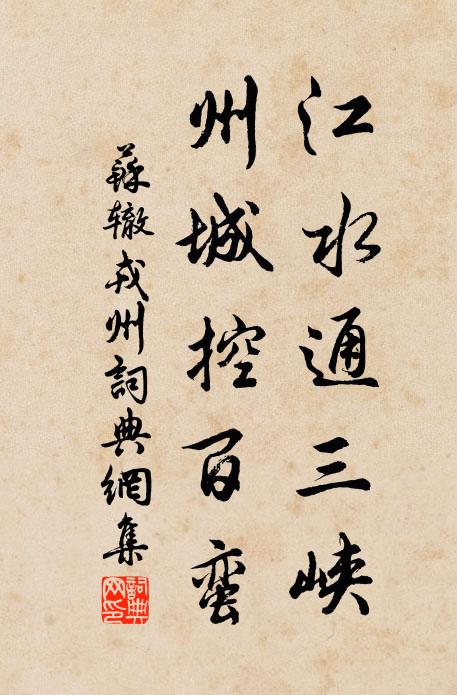 江水通三峡
州城控百蛮
蘇辙戎州詞典網集
詞典网印